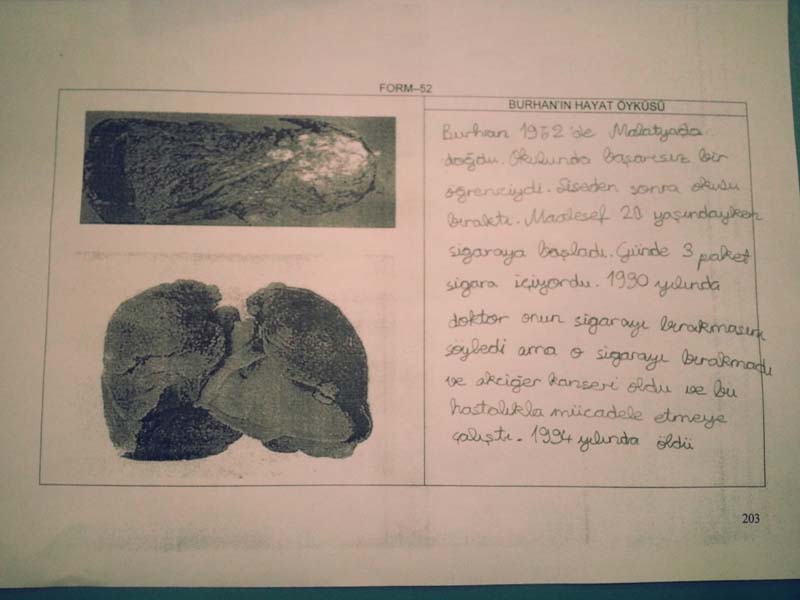 FORM–52
BURHAN'IN HAYAT ÖYKÜSÜ
Burhan 1952'de Malatyada
doğdu. Okulunda başarısız bir
öğrenciydi. Liseden sonra okulu
bıraktı. Maalesef 20 yaşındayken
sigaraya başladı. Günde 3 paket
sigara içiyordu. 1990 yılında
doktor onun sigarayı bırakmasını
söyledi ama o sigarayı bırakmadı
ve akciğer kanseri oldu ve bu
hastalıkla mücadele etmeye
çalıştı. 1994 yılında öldü
203